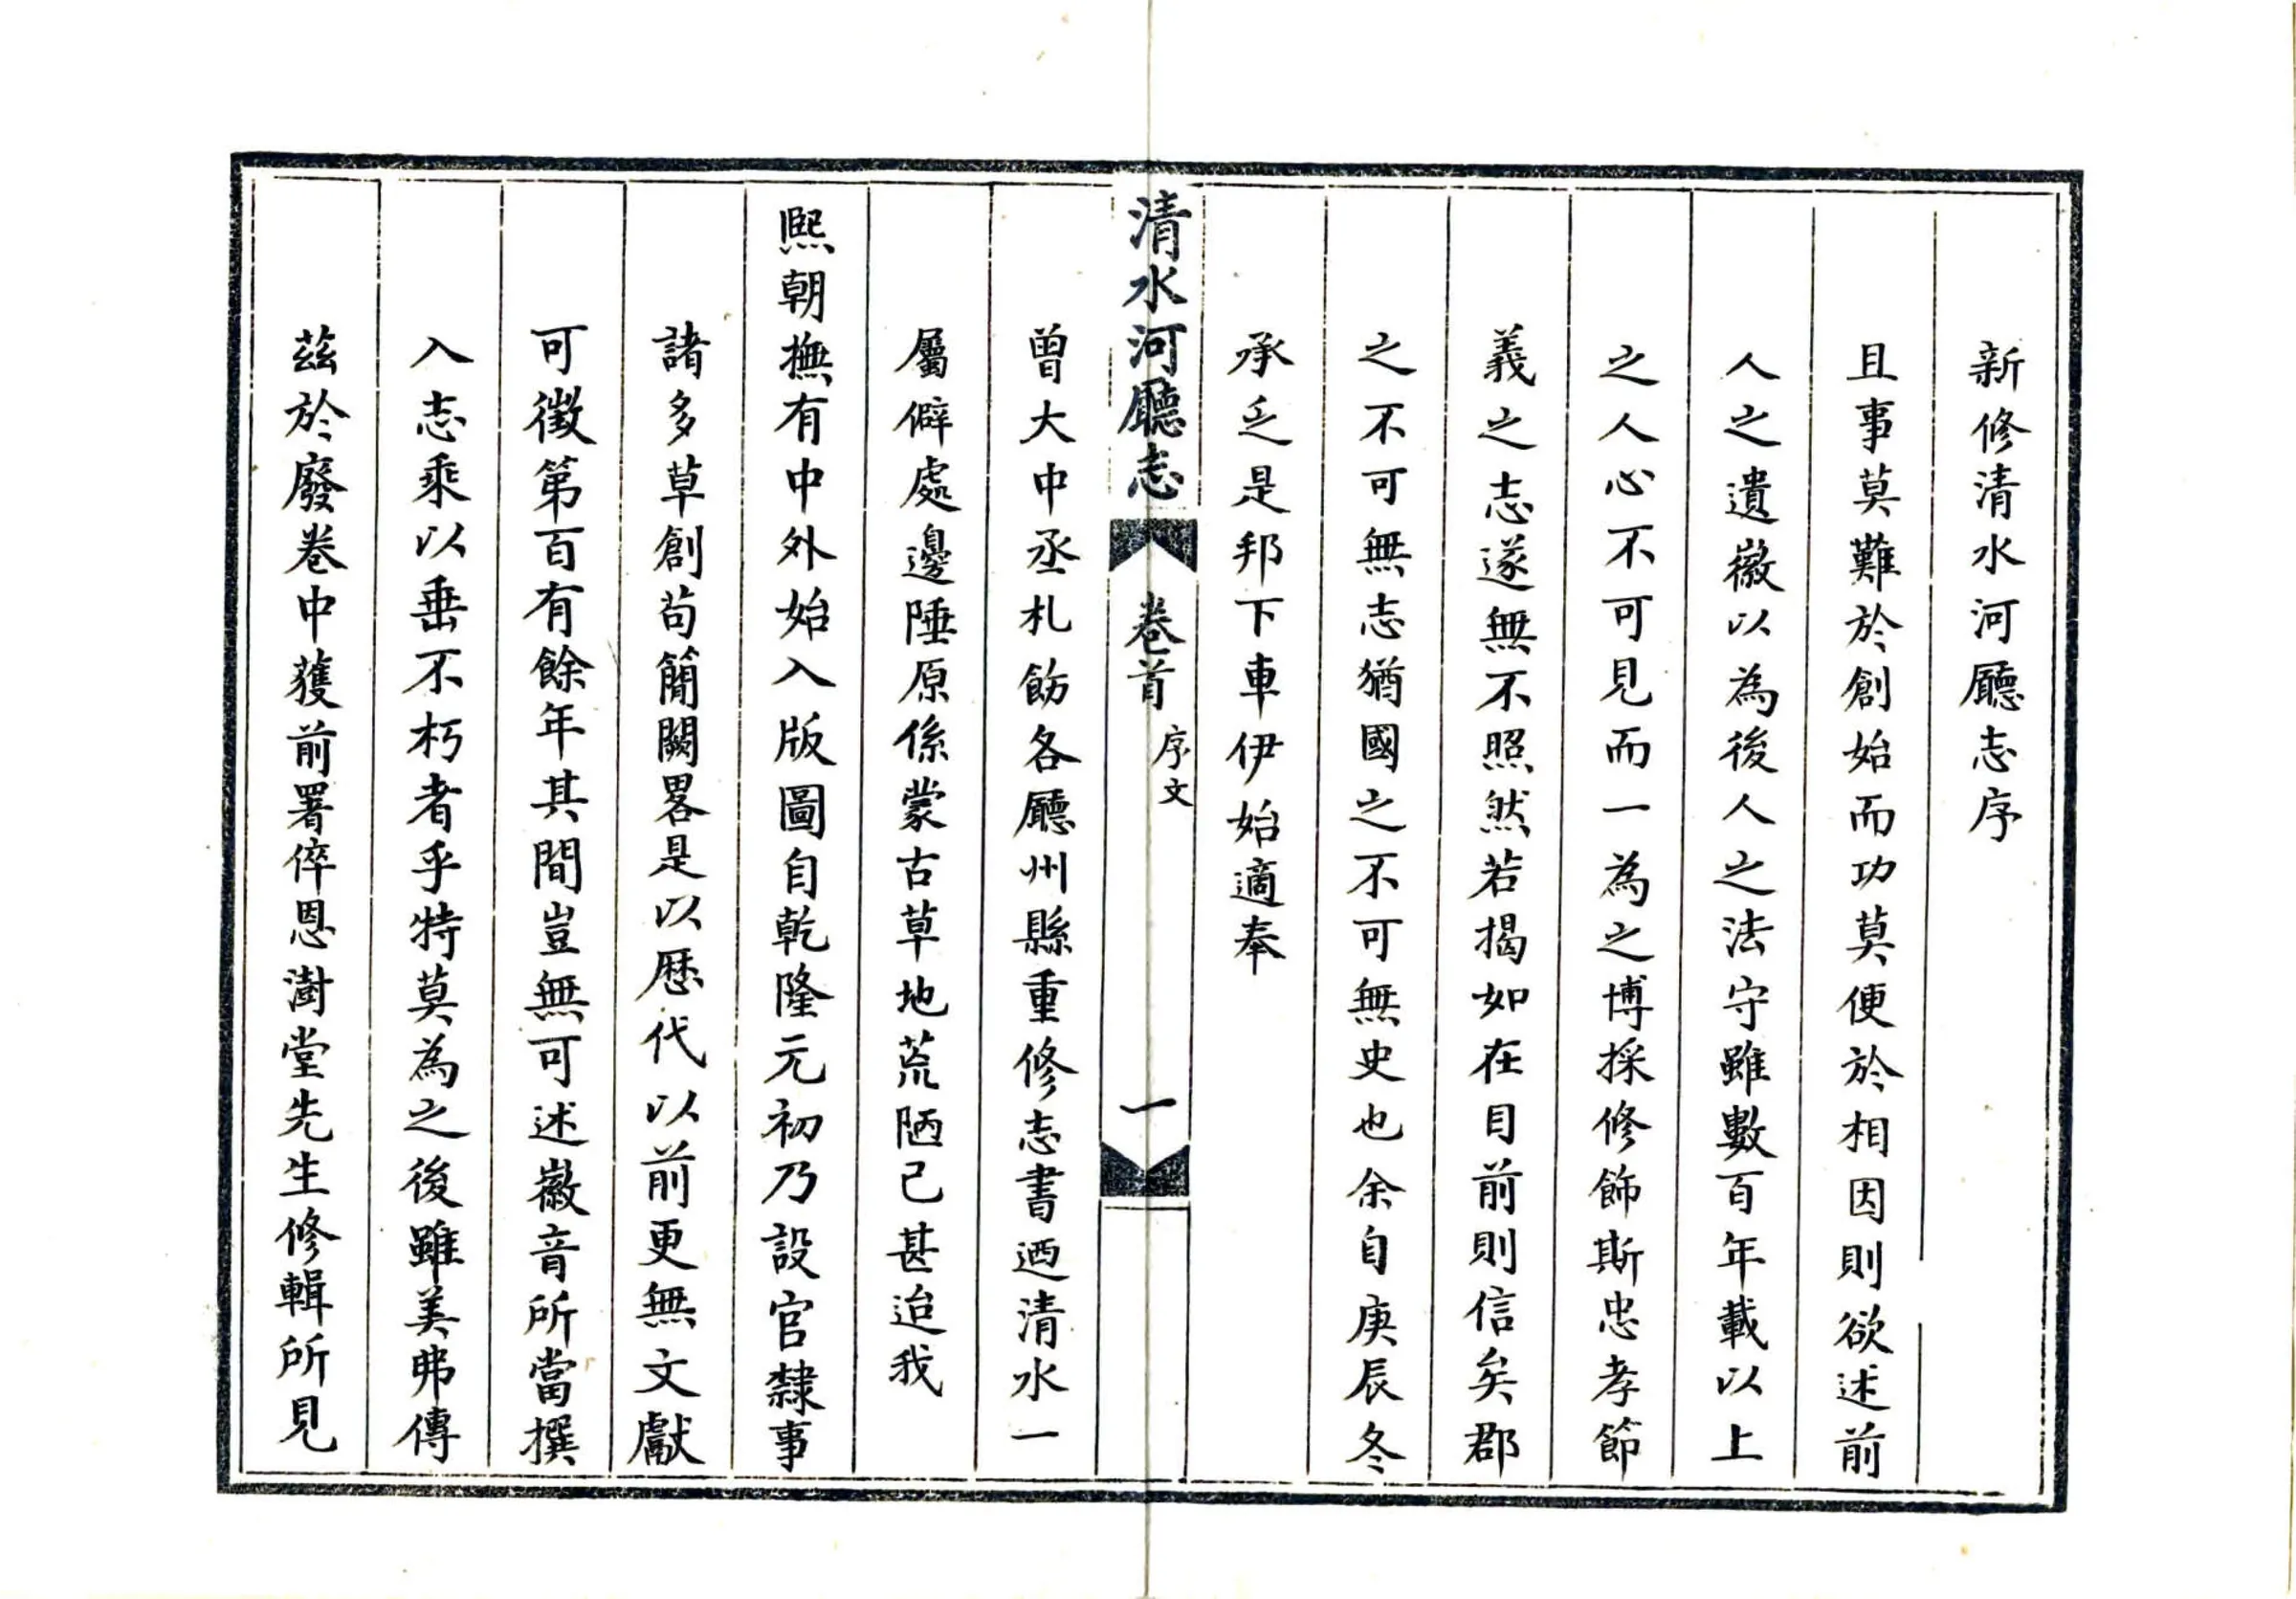 新修清水河廳志序
且事莫難於創始而功莫便於相因則欲述前
人之遺徽以為後人之法守雖數百年載以上
之人心不可見而一為之博採修飾斯忠孝節
義之志遂無不照然若揭如在目前則信矣郡
之不可無志猶國之不可無史也余自庚辰冬
承乏是邦下車伊始適奉
清水河廳志
卷首
序文
一
曾大中丞札飭各廳州縣重修志書迺清水一
屬僻處邊陲原係蒙古草地荒陋已甚迨我
熙朝撫有中外始入版圖自乾隆元初乃設官隸事
諸多草創苟簡闕畧是以歷代以前更無文獻
可徵第百有餘年其間豈無可述徽音所當撰
入志乘以垂不朽者乎特莫為之後雖美弗傳
茲於廢卷中獲前署倅恩澍堂先生修輯所見